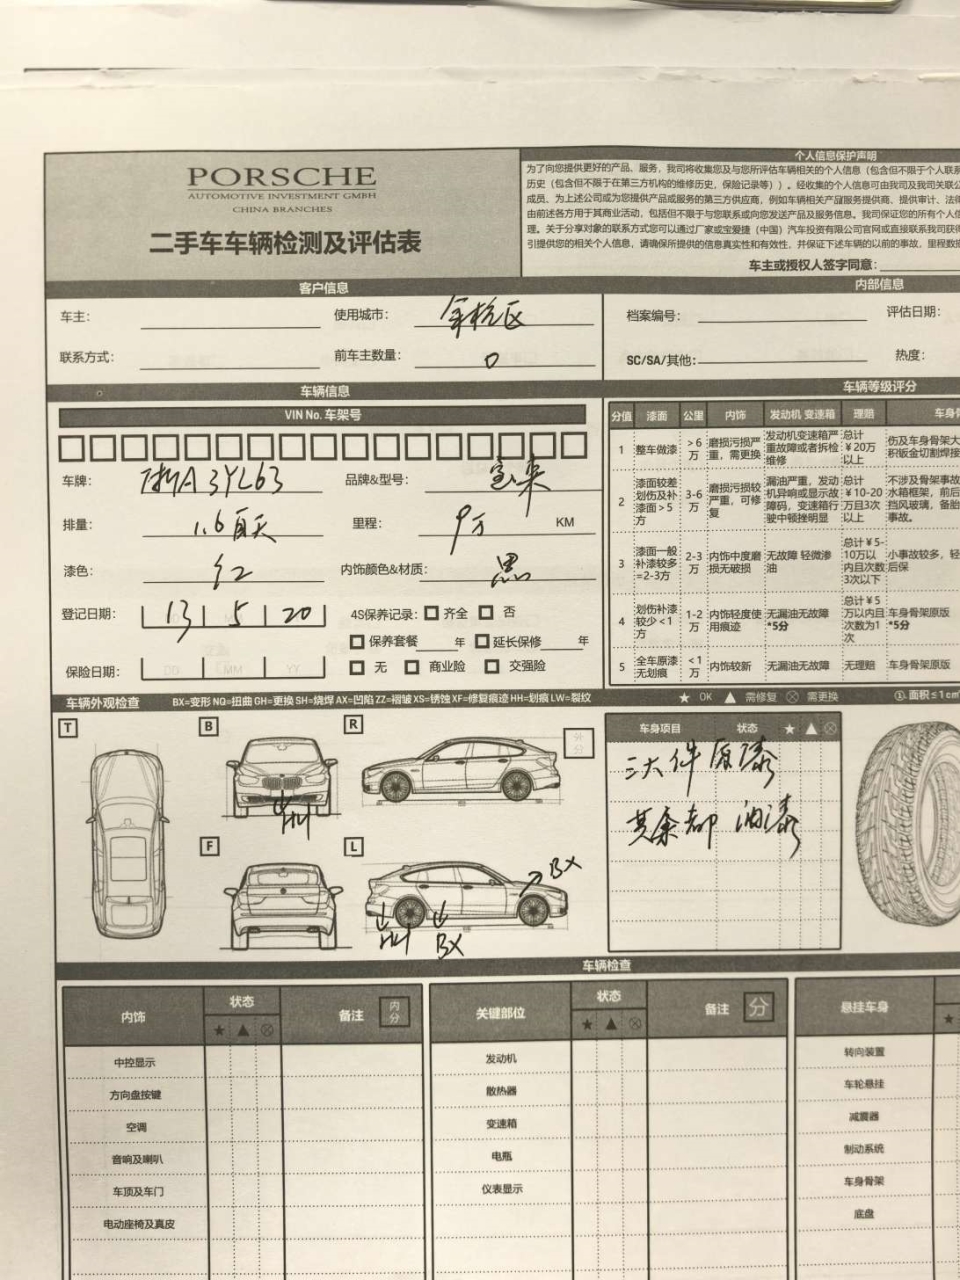 PORSCHE
AUTOMOTIVE INVESTMENT GMBH
CHINA BRANCHES
二手车车辆检测及评估表
个人信息保护声明
为了向您提供更好的产品、服务，我司将收集您及与您所评估车辆相关的个人信息（包含但不限于个人联系
历史（包含但不限于在第三方机构的维修历史，保险记录等））。经收集的个人信息可由我司及我司关联公
成员、为上述公司或为您提供产品或服务的第三方供应商，例如车辆相关产品服务提供商、提供审计、法律
由前述各方用于其商业活动，包括但不限于与您联系或向您发送产品及服务信息。我司保证您的所有个人信
理。关于分享对象的联系方式您可以通过厂家或宝爱捷（中国）汽车投资有限公司官网或直接联系我司获得
引提供您的相关个人信息，请确保所提供的信息真实性和有效性，并保证下述车辆的以前的事故，里程数据
车主或授权人签字同意：
客户信息
内部信息
车主：
使用城市： 余杭区
档案编号：
评估日期：
联系方式：
前车主数量： 0
SC/SA/其他：
热度：
车辆信息
车辆等级评分
VIN No. 车架号
车牌： 浙A 3YL63
品牌&型号： 宝来
排量： 1.6自天
里程： 9万 KM
漆色： 红
内饰颜色&材质： 黑
登记日期： 13 5 20
4S保养记录： 齐全 否
保养套餐 年 延长保修 年
保险日期： DD MM YY
无 商业险 交强险
分值 漆面 公里 内饰 发动机 变速箱 理赔 车身骨
1 整车做漆 >6万 磨损污损严重，需更换 发动机变速箱严重故障或者拆检维修 总计￥20万以上 伤及车身骨架大积钣金切割焊接
2 漆面较差划伤及补漆面>5方 3-6万 磨损污损较严重，可修复 漏油严重，发动机异响或显示故障码，变速箱行驶中顿挫明显 总计￥10-20万且3次以上 不涉及骨架事故水箱框架，前后挡风玻璃，备胎事故。
3 漆面一般补漆较多=2-3方 2-3万 内饰中度磨损无破损 无故障 轻微渗油 总计￥5-10万以内且次数3次以下 小事故较多，轻后保
4 划伤补漆较少<1方 1-2万 内饰轻度使用痕迹 无漏油无故障*5分 总计￥5万以内且次数为1次 车身骨架原版*5分
5 全车原漆无划痕 <1万 内饰较新 无漏油无故障 无理赔 车身骨架原版
车辆外观检查 BX=变形 NQ=扭曲 GH=更换 SH=烧焊 AX=凹陷 ZZ=褶皱 XS=锈蚀 XF=修复痕迹 HH=划痕 LW=裂纹
★ OK ▲ 需修复 ⊗ 需更换
①. 面积≤1cm
T
B
R
外分
HH
F
L
BX
HH
BX
车身项目 状态 ★ ▲ ⊗
三大件原漆
其余都 油漆
车辆检查
内饰 状态 ★ ▲ ⊗ 备注 内分
关键部位 状态 ★ ▲ ⊗ 备注 分
悬挂车身 ★
中控显示
发动机
转向装置
方向盘按键
散热器
车轮悬挂
空调
变速箱
减震器
音响及喇叭
电瓶
制动系统
车顶及车门
仪表显示
车身骨架
电动座椅及真皮
底盘